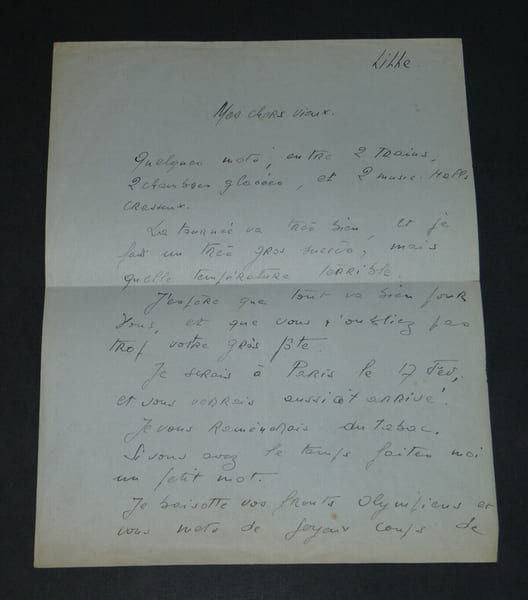 Lille.
Mes chers vieux.
Quelques mots, entre 2 trains,
2 chambres glacées, et 2 music-Halls
crasseux.
La tournée va très bien, et je
fais un très gros succès, mais
quelle température terrible.
J'espère que tout va bien pour
vous, et que vous n'oubliez pas
trop votre gros
Je serais à Paris le 17 Fév,
et vous verrais aussitôt arrivé!
Je vous ramènerais du Tabac.
Si vous avez le temps faites moi
un petit mot.
Je baisotte vos fronts Olympiens et
vous de joyeux coups de